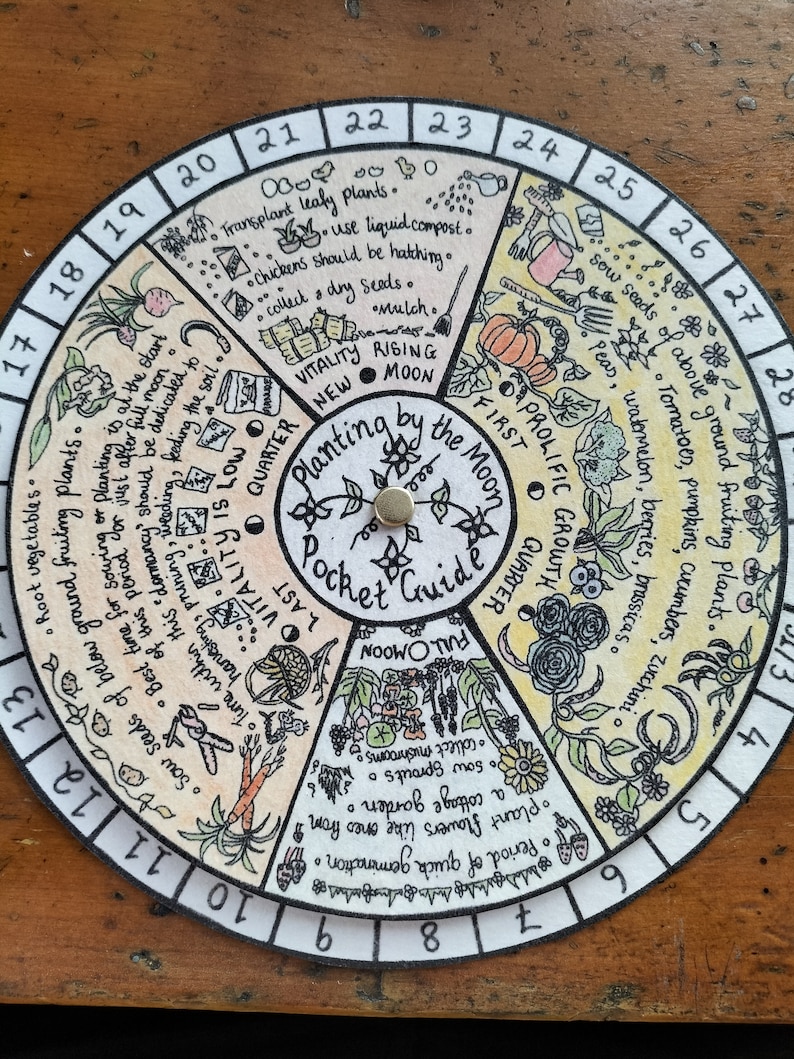 Planting by the Moon
Pocket Guide
Transplant leafy plants.
use liquid compost.
Chickens should be hatching.
collect & dry seeds.
Mulch.
VITALITY RISING
NEW MOON
sow seeds of above ground fruiting plants.
Tomatoes, pumpkins, cucumbers, zucchini.
Peas, watermelon, berries, brassicas.
PROLIFIC GROWTH
FIRST QUARTER
FULL MOON
collect mushrooms
sow sprouts
plant flowers like ones from
a cottage garden
Period of quick germination
Root vegetables
sow seeds of below ground fruiting plants.
Best time for sowing or planting is at the start
of this period or just after full moon
Time within this 'dormancy' should be dedicated to
harvesting, pruning, weeding, feeding the soil.
VITALITY IS LOW
LAST QUARTER
17
18
19
20
21
22
23
24
25
26
27
28
31/3
4
5
6
7
8
9
10
11
12
13